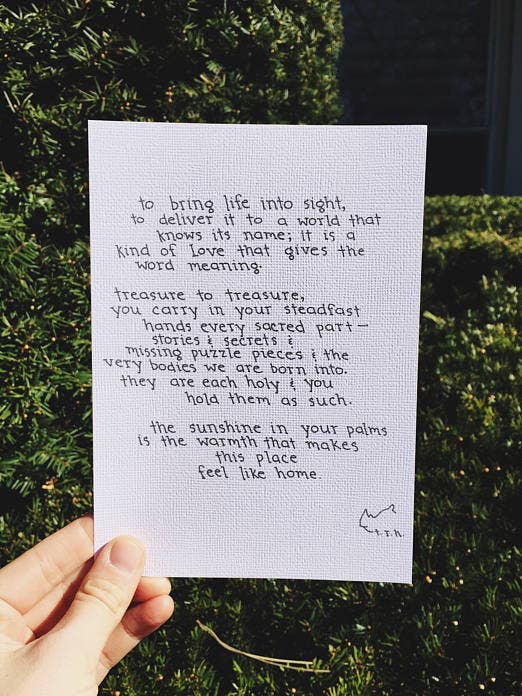 to bring life into sight,
to deliver it to a world that
knows its name; it is a
kind of love that gives the
word meaning.
treasure to treasure,
you carry in your steadfast
hands every sacred part—
stories & secrets &
missing puzzle pieces & the
very bodies we are born into.
they are each holy & you
hold them as such.
the sunshine in your palms
is the warmth that makes
this place
feel like home.